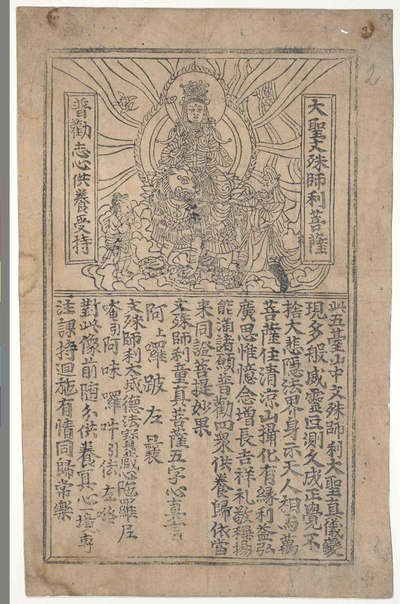 大聖文殊師利菩薩
普勸志心供養受持
此五臺山中文殊師利大聖真儀變
現多般威靈叵測久成正覺不
捨大悲隱法界身示天人相與萬
菩薩住清涼山攝化有緣利益弘
廣思惟憶念增長吉祥禮敬稱揚
能滿諸願普勸四眾供養歸依當
來同證菩提妙果
文殊師利童真菩薩五字心真言
阿上囉跛左曩
文殊師利大威德法寶藏心陀羅尼
唵引阿味囉吽引佉左路
對此像前隨分供養冥心一境專
注課持迴施有情同歸常樂
2